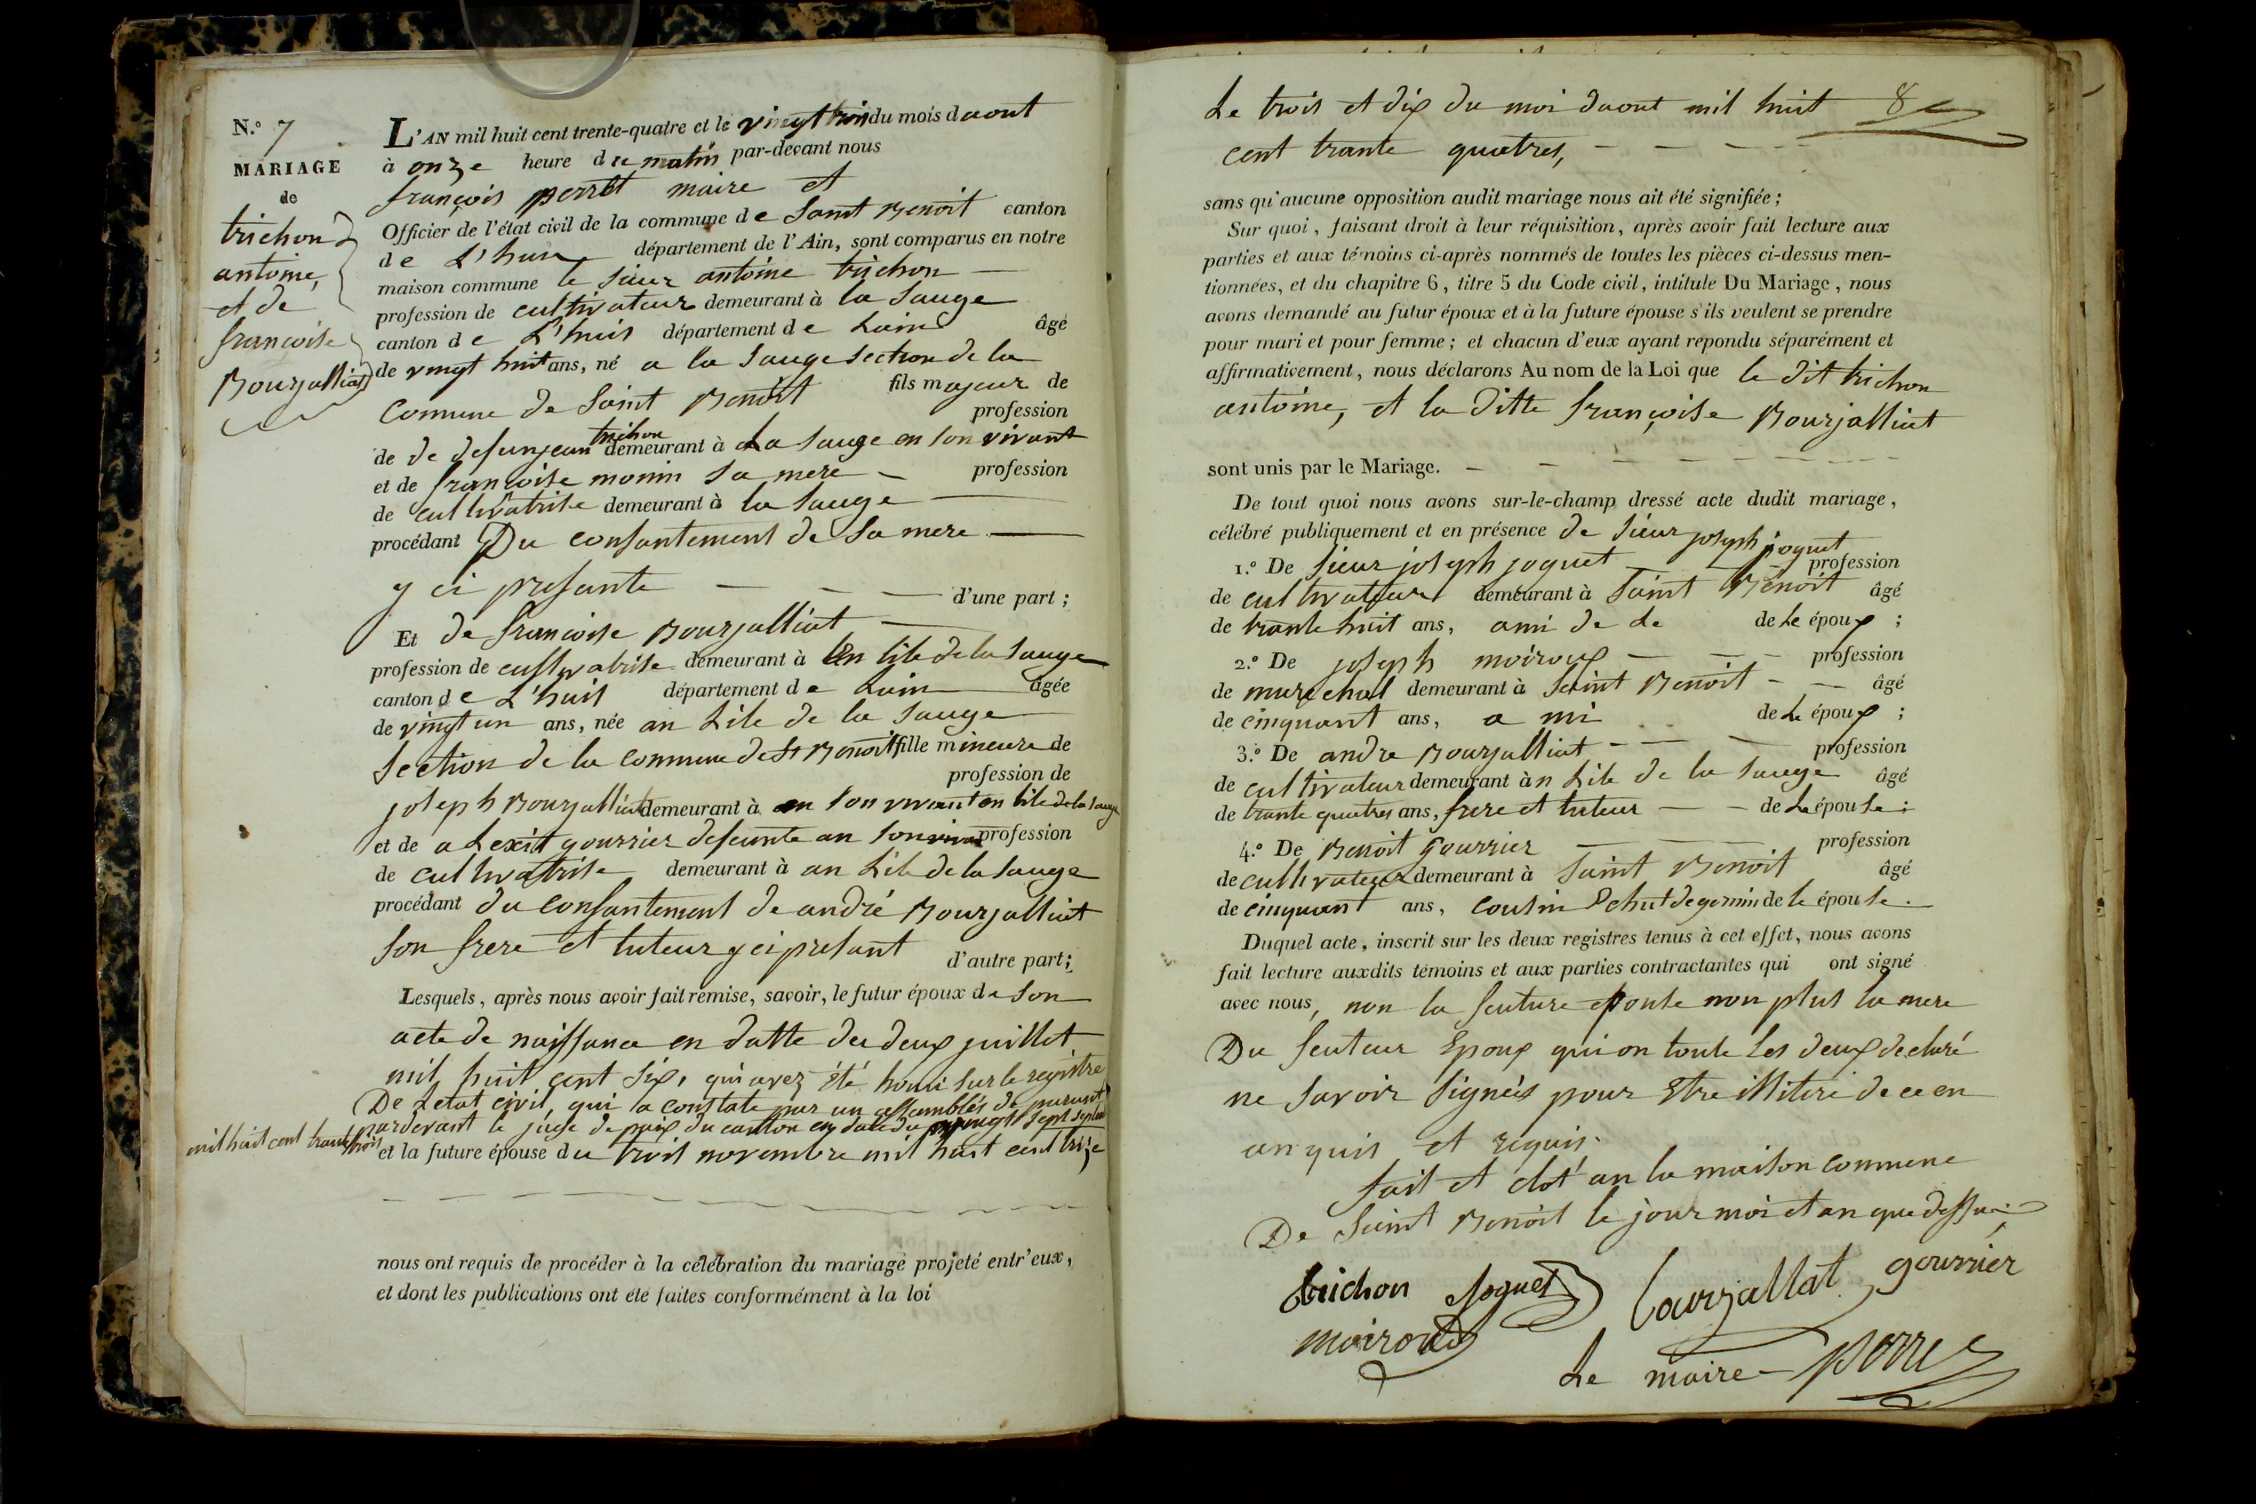 N.º 7
MARIAGE
de
trichon
antoine,
et de
françoise
Bourjalliat
L'AN mil huit cent trente-quatre et le vingt trois du mois d aout
à onze heure d u matin par-devant nous
françois perret maire et
Officier de l'état civil de la commune d e Saint Benoit canton
d e L'huis département de l'Ain, sont comparus en notre
maison commune le sieur antoine trichon
profession de cultivateur demeurant à la Sauge
canton d e L'huis département d e Lain âgé
de vingt huit ans, né a la Sauge section de la
Commune de Saint Benoit fils majeur de
profession
de de defun jean trichon demeurant à La Sauge en son vivant
et de françoise monin sa mere profession
de cultivatrise demeurant à la Sauge
procédant Du consantement de Sa mere
y ci presante d'une part ;
Et de francoise Bourjalliat
profession de cultivatrise demeurant à en Lile de la Sauge
canton d e L'huis département d e Lain âgée
de vingt un ans, née an Lile de la Sauge
Section de la commune de St Benoit fille mineure de
profession de
joseph Bourjalliat demeurant à en son vivant en Lile de la Sauge
et de alexit gourrier defeunte an son vivant profession
de cultivatrise demeurant à an Lile de la Sauge
procédant du consantement de andré Bourjalliat
Son frere et tuteur y ci presant d'autre part;
Lesquels, après nous avoir fait remise, savoir, le futur époux d e son
acte de naissance en datte du deux juillet
mil huit cent six, qui avez été homi sur le registre
De Letat civil, qui a constate par un assemblés de parant
pardevant le juge de paix du canton en date du vingt sept
mil huit cent trante trois
et la future épouse d u trois novembre mil huit cent trize
nous ont requis de procéder à la célébration du mariage projeté entr'eux,
et dont les publications ont été faites conformément à la loi
Le trois et dix du moi daout mil huit 8
cent trante quatres,
sans qu'aucune opposition audit mariage nous ait été signifiée ;
Sur quoi, faisant droit à leur réquisition, après avoir fait lecture aux
parties et aux témoins ci-après nommés de toutes les pièces ci-dessus men-
tionnées, et du chapitre 6, titre 5 du Code civil, intitulé Du Mariage, nous
avons demandé au futur époux et à la future épouse s'ils veulent se prendre
pour mari et pour femme ; et chacun d'eux ayant répondu séparément et
affirmativement, nous déclarons Au nom de la Loi que le dit trichon
antoine, et la ditte françoise Bourjalliat
sont unis par le Mariage.
De tout quoi nous avons sur-le-champ dressé acte dudit mariage,
célébré publiquement et en présence de sieur joseph joguet
1.º De Sieur joseph joguet profession
de cultivateur demeurant à Saint Benoit âgé
de trante huit ans, ami de de de Le époux ;
2.º De joseph moiroux profession
de marechal demeurant à Saint Benoit âgé
de cinquant ans, a mi de Le époux ;
3.º De andre Bourjalliat profession
de cultivateur demeurant àn Lile de la Sauge âgé
de trante quatres ans, frere et tuteur de Lé pouse ;
4.º De Benoit Gourrier profession
de cultivateur demeurant à Saint Benoit âgé
de cinquant ans, cousin germin de le épouse.
Duquel acte, inscrit sur les deux registres tenus à cet effet, nous avons
fait lecture auxdits témoins et aux parties contractantes qui ont signé
avec nous, non la feuture epouse non plus la mere
Du feuteur Epoux qui on toute les deux declaré
ne savoir signés pour Etre illiteré de ce en
anquis et requis.
fait et clot an la maison commune
De Saint Benoit le jour moi et an que dessus
trichon Joguet Bourjallat gourrier
moiroud
Le maire perret